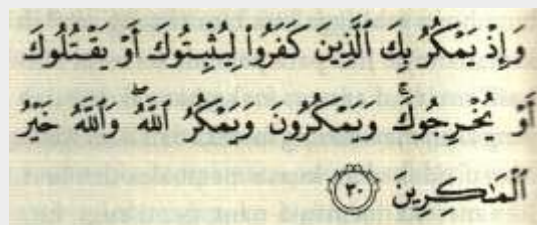 وَإِذْ يَمْكُرُ بِكَ ٱلَّذِينَ كَفَرُوا۟ لِيُثْبِتُوكَ أَوْ يَقْتُلُوكَ
أَوْ يُخْرِجُوكَ ۚ وَيَمْكُرُونَ وَيَمْكُرُ ٱللَّهُ ۖ وَٱللَّهُ خَيْرُ
ٱلْمَـٰكِرِينَ ٣٠